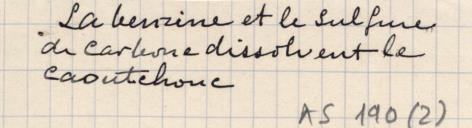 La benzine et le sulfure
de carbone dissolvent le
caoutchouc
AS 190 (2)